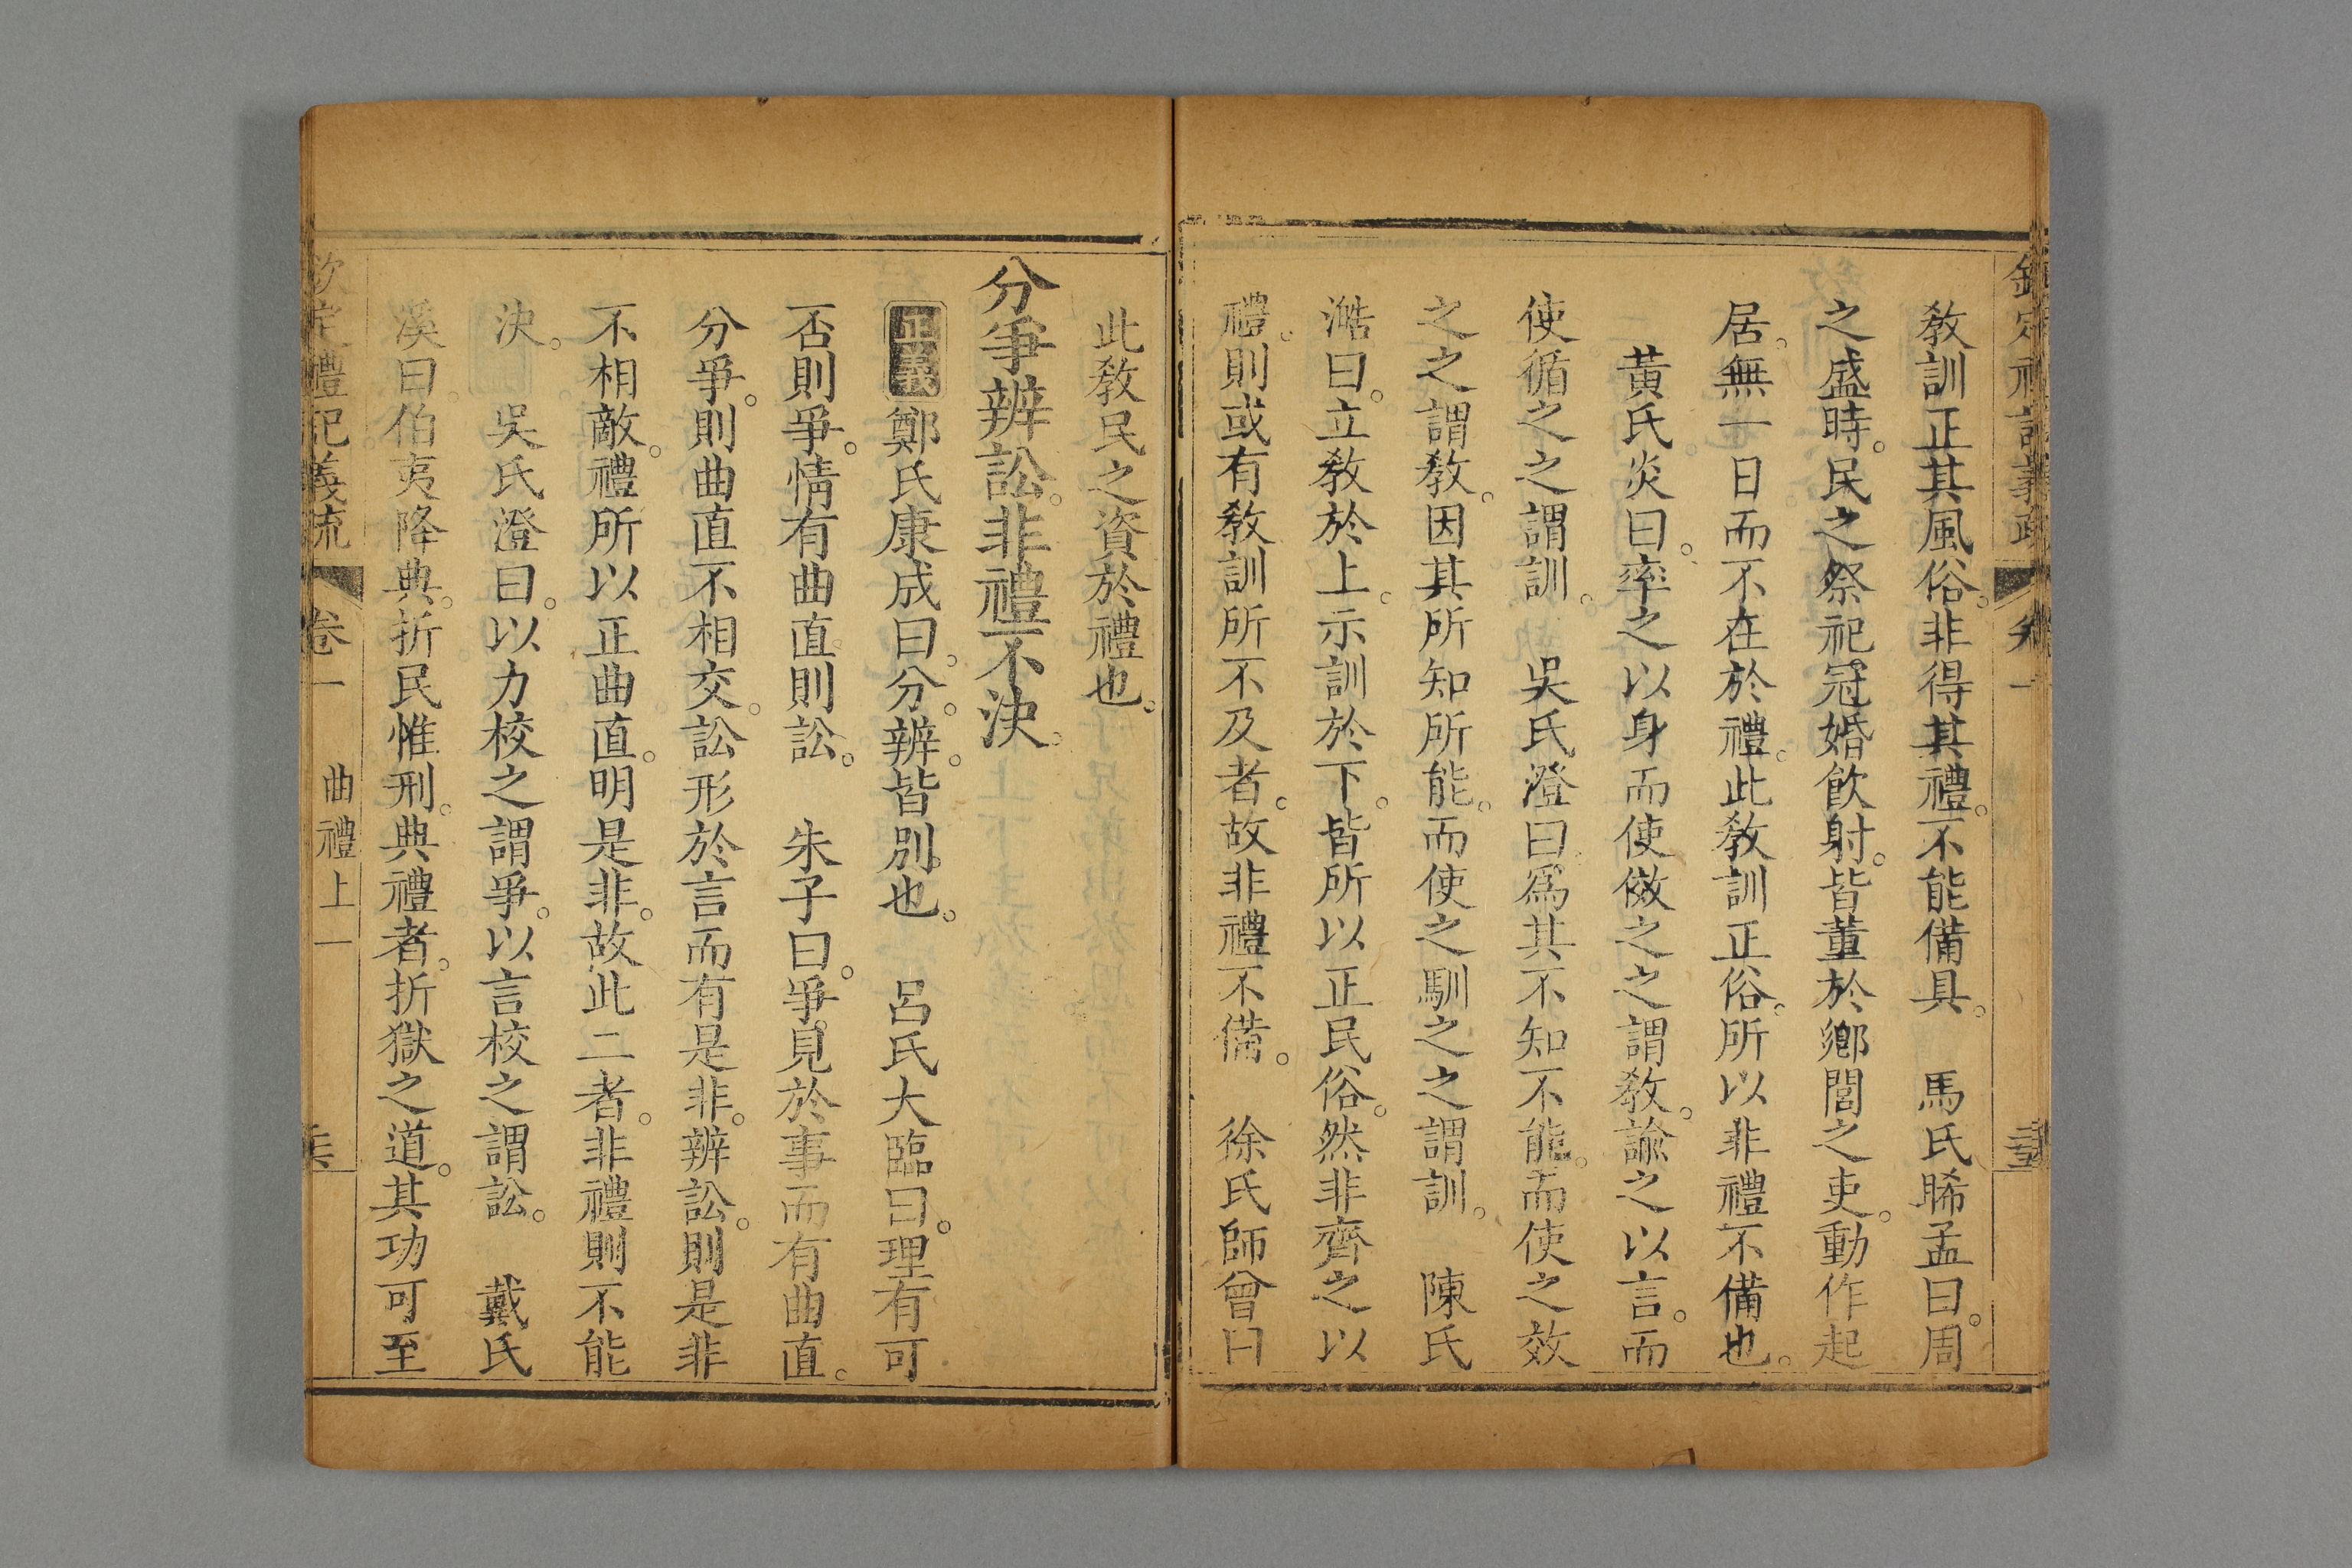 欽定禮記義疏 卷一
敎訓正其風俗。非得其禮。不能備具。 馬氏睎孟曰。周
之盛時。民之祭祀冠婚飮射。皆董於鄕閭之吏。動作起
居。無一日而不在於禮。此敎訓正俗。所以非禮不備也。
黄氏炎曰。率之以身而使傚之之謂敎。諭之以言。而
使循之之謂訓。 吳氏澄曰。爲其不知不能。而使之效
之之謂敎。因其所知所能。而使之馴之之謂訓。 陳氏
澔曰。立敎於上。示訓於下。皆所以正民俗。然非齊之以
禮。則或有敎訓所不及者。故非禮不備。 徐氏師曾曰
此敎民之資於禮也。
分爭辨訟。非禮不決。
正義 鄭氏康成曰。分。辨。皆別也。 呂氏大臨曰。理有可
否則爭。情有曲直則訟。 朱子曰。爭。見於事而有曲直。
分爭。則曲直不相交。訟形於言而有是非。辨訟。則是非
不相敵。禮所以正曲直。明是非。故此二者。非禮則不能
決。 吳氏澄曰。以力校之謂爭。以言校之謂訟。 戴氏
溪曰。伯夷降典。折民惟刑。典禮者。折獄之道。其功可至
欽定禮記義疏 卷一 曲禮上一